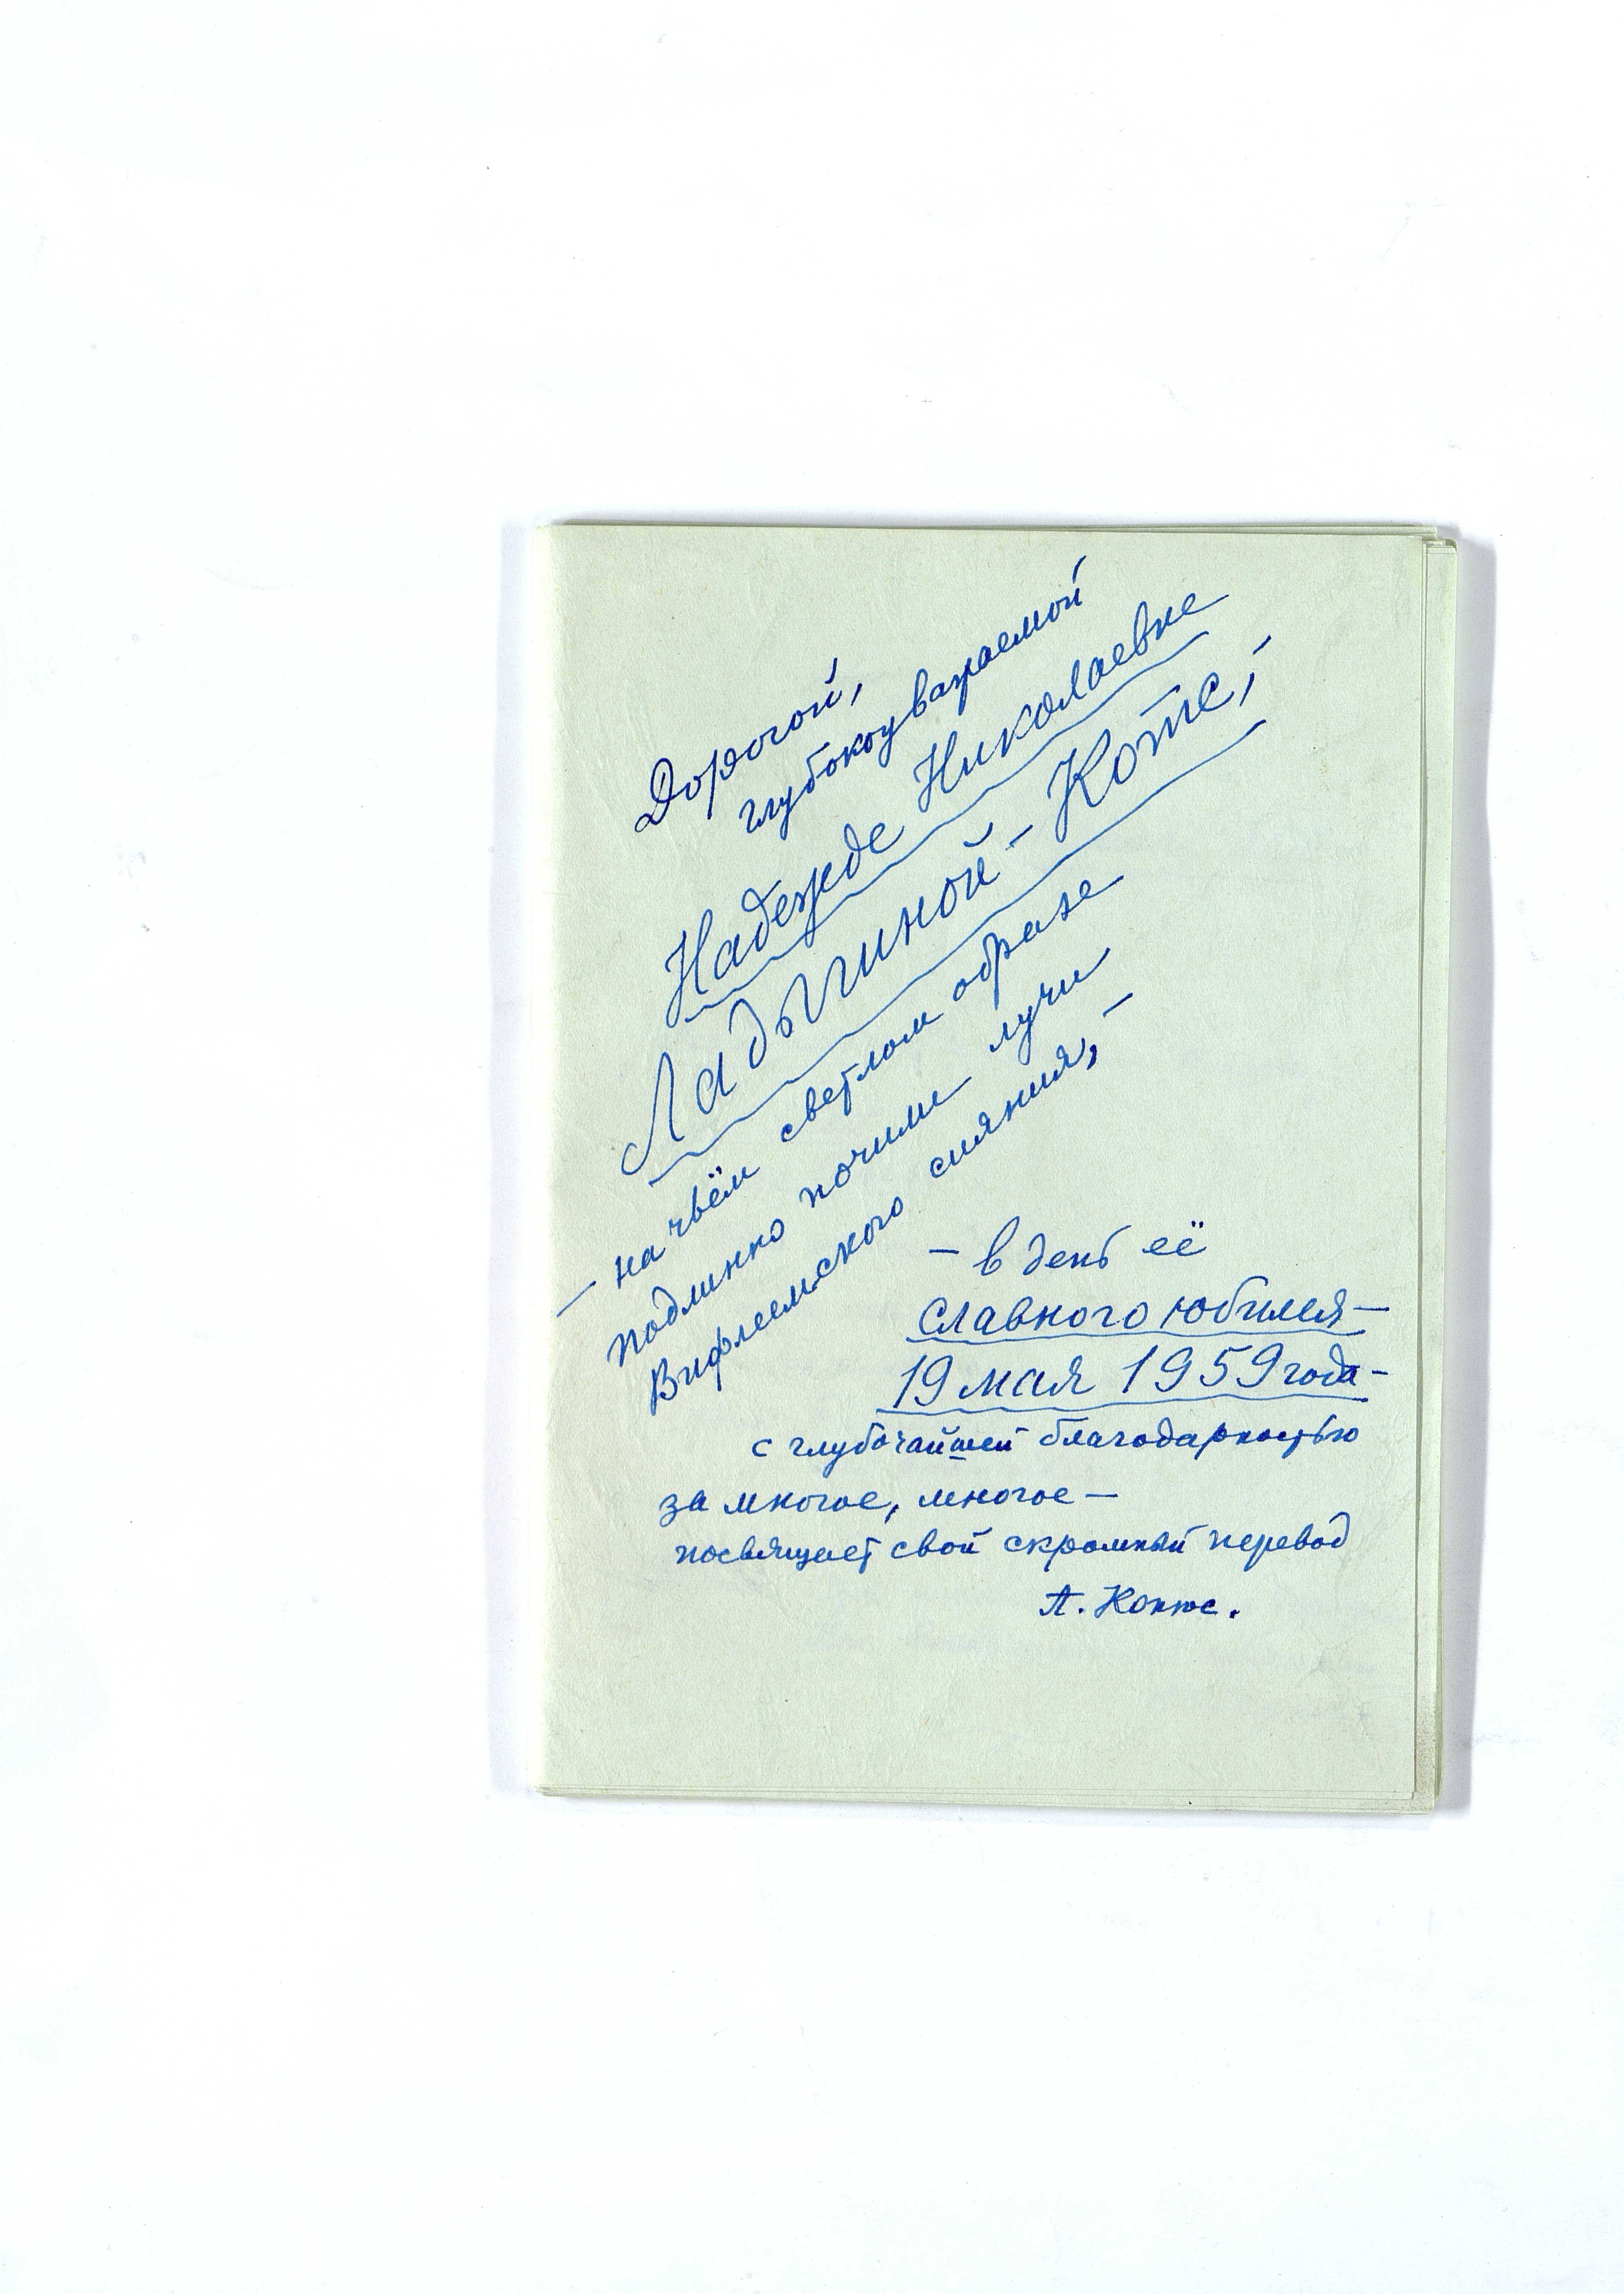 Дорогой,
глубокоуважаемой
Надежде Николаевне
Ладыгиной-Котс, –
– на чьём светлом образе
подлинно почили лучи
Вифлеемского сияния, –
– в день её
славного юбилея –
19 мая 1959 года –
с глубочайшей благодарностью
за многое, многое –
посвящает свой скромный перевод
А.